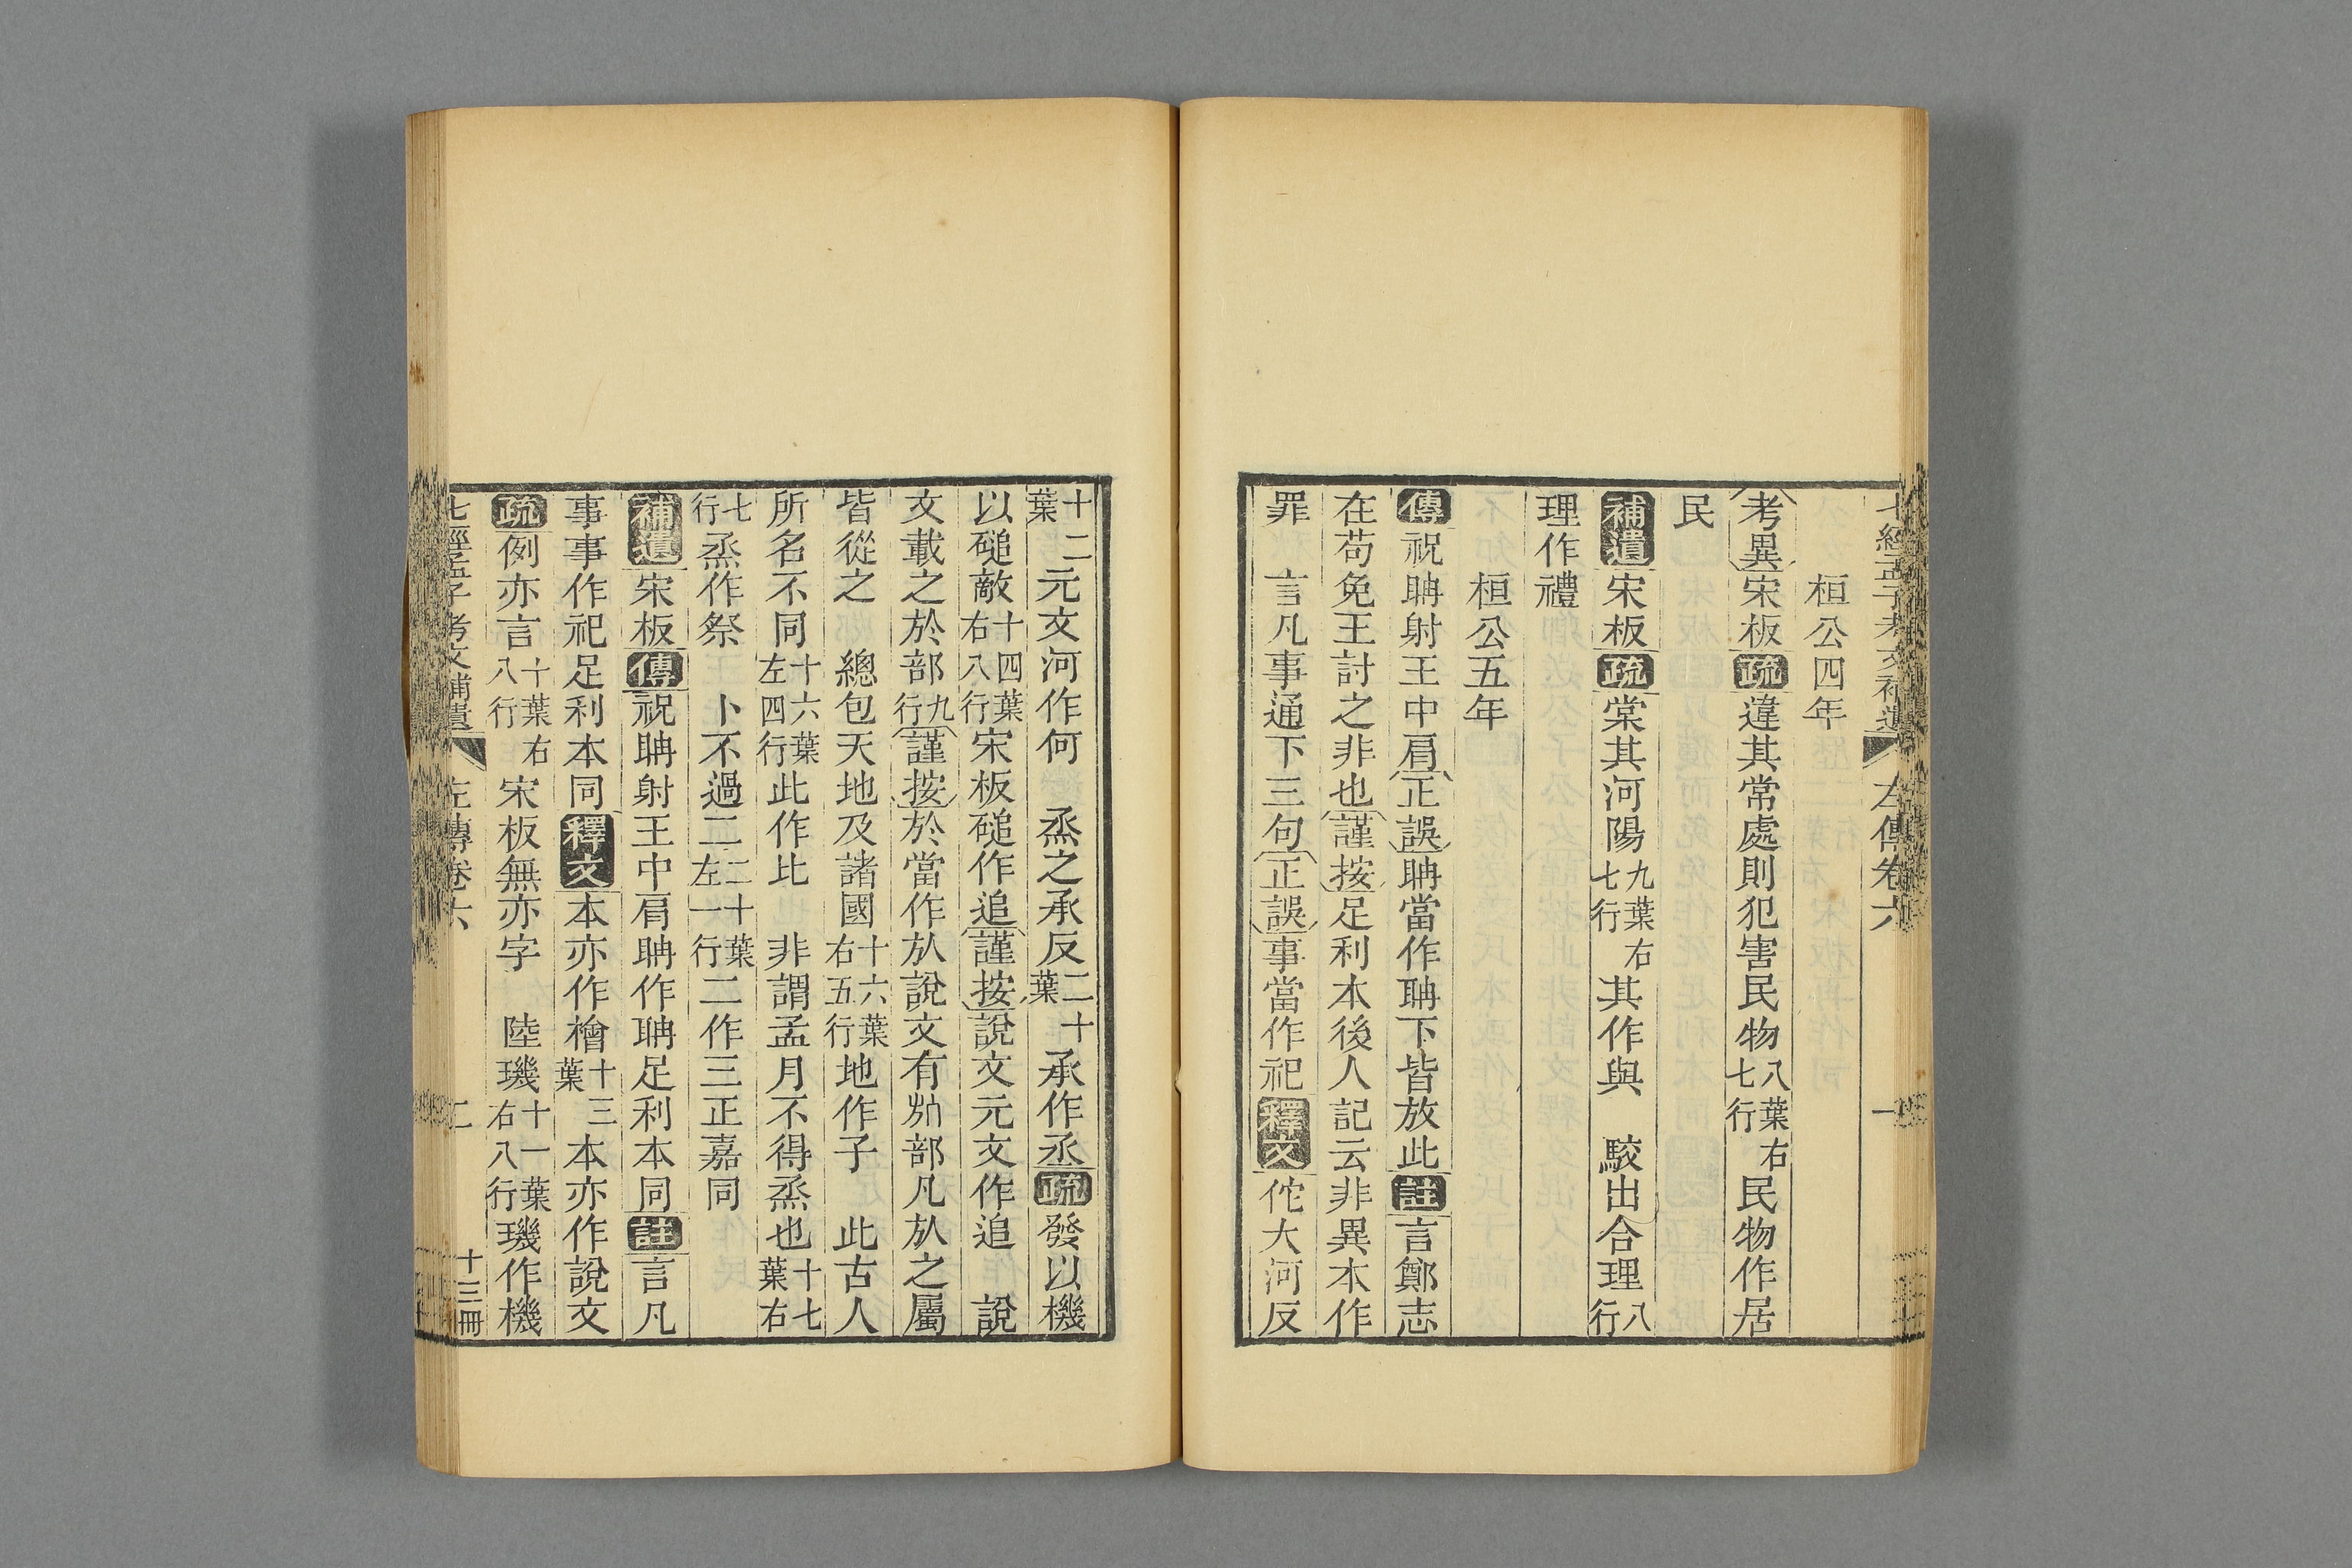 七經孟子考文補遺 左傳卷六 一
桓公四年
考異宋板疏違其常處則犯害民物八葉右七行民物作居
民
補遺宋板疏棠其河陽九葉右七行其作與 駮出合理八行
理作禮
桓公五年
傳祝聃射王中肩正誤聃當作聃下皆放此註言鄭志
在苟免王討之非也謹按足利本後人記云非異本作
罪 言凡事通下三句正誤事當作祀釋文佗大河反
十二葉元文河作何 烝之承反二十葉承作丞疏發以機
以磓敵十四葉右八行宋板磓作追謹按說文元文作追 說
文載之於部九行謹按於當作㫃說文有㫃部凡㫃之屬
皆從之 總包天地及諸國十六葉右五行地作子 此古人
所名不同十六葉左四行此作比 非謂孟月不得烝也十七葉右
七行烝作祭 卜不過二二十葉左一行二作三正嘉同
補遺宋板傳祝聃射王中肩聃作聃足利本同註言凡
事事作祀足利本同釋文本亦作檜十三葉本亦作說文
疏例亦言十葉右八行宋板無亦字 陸璣十一葉右八行璣作機
七經孟子考文補遺 左傳卷六 二 十三冊